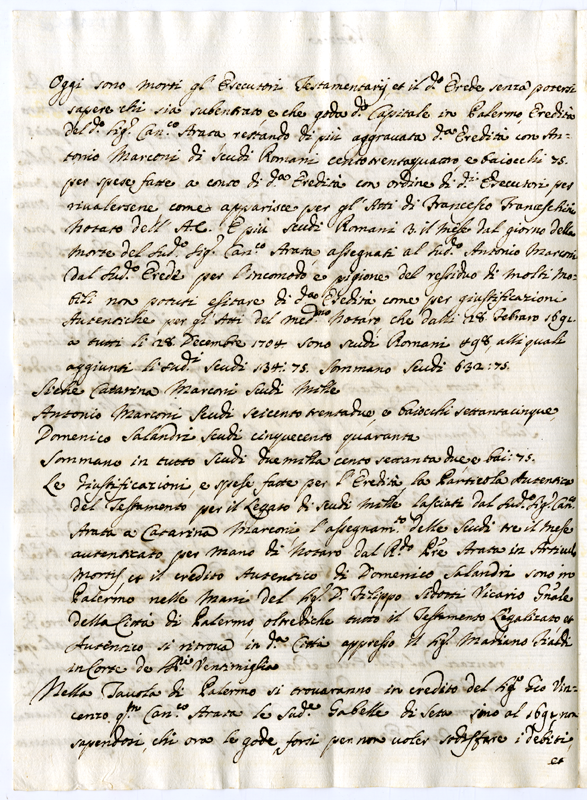 Oggi sono morti gl' Esecutori Testamentarij et il d.o Erede senza potersi
sapere chi sia subentrato e che goda d.o Capitale in Palermo Eredità
del d.o Sig.r Can.co Strata restando di più aggravata d.a Eredità con An=
tonio Marconi di Scudi Romani centotrentaquattro e baiocchi 75.
per spese fatte a conto di d.a Eredità con ordine di d.i Esecutori per
rivalersene come apparisce per gl' Atti di Francesco Franceschini
Notaro dell' A.C. E più Scudi Romani 3. il Mese dal giorno della
Morte del Sud.o Sig.r Can.co Strata assegnati al Sud.o Antonio Marconi
dal Sud.o Erede per l'incomodo e pigione del residuo di molti Mo=
bili non potuti esitare di d.a Eredità come per giustificazioni
Autentiche per gl' Atti del med.mo Notaro che dalli 28 Febraro 1691
a tutti li 28 Decembre 1704 sono scudi Romani 498, alli quali
aggiunti li Sud.i Scudi 134:75. Sommano Scudi 632:75.
Siche Catarina Marconi Scudi Mille
Antonio Marconi Scudi Seicento trentadue, e baiocchi settantacinque,
Domenico Salandri Scudi cinquecento quaranta
Sommano in tutto Scudi due milla cento settanta due, e bai: 75.
Le Giustificazioni, e spese fatte per l'Eredità la Particola Autentica
del Testamento per il Legato di Scudi Mille lasciati dal Sud.o Sig.r Can.co
Strata a Catarina Marconi l'assegnam.to delle Scudi tre il Mese
autenticato per mano di Notaro dal R.do P.re Strata in Articulo
Mortis, et il credito Autentico di Domenico Salandri sono in
Palermo nelle Mani del Sig.r D. Filippo Sidotti Vicario G.nale
della Città di Palermo, oltrediche tutto il Testamento Legalizato et
Autentico si ritrova in d.a Città appresso il Sig.r Mariano
in Corte de Ventimiglia
Nella Tavola di Palermo si trovaranno in credito del Sig.r Gio Vin=
cenzo q.m Can.co Strata le Sud.e Gabelle di Seta sino al 1691, non
sapendosi, chi ora le gode, forsi per non voler sodisfare i debiti,
et